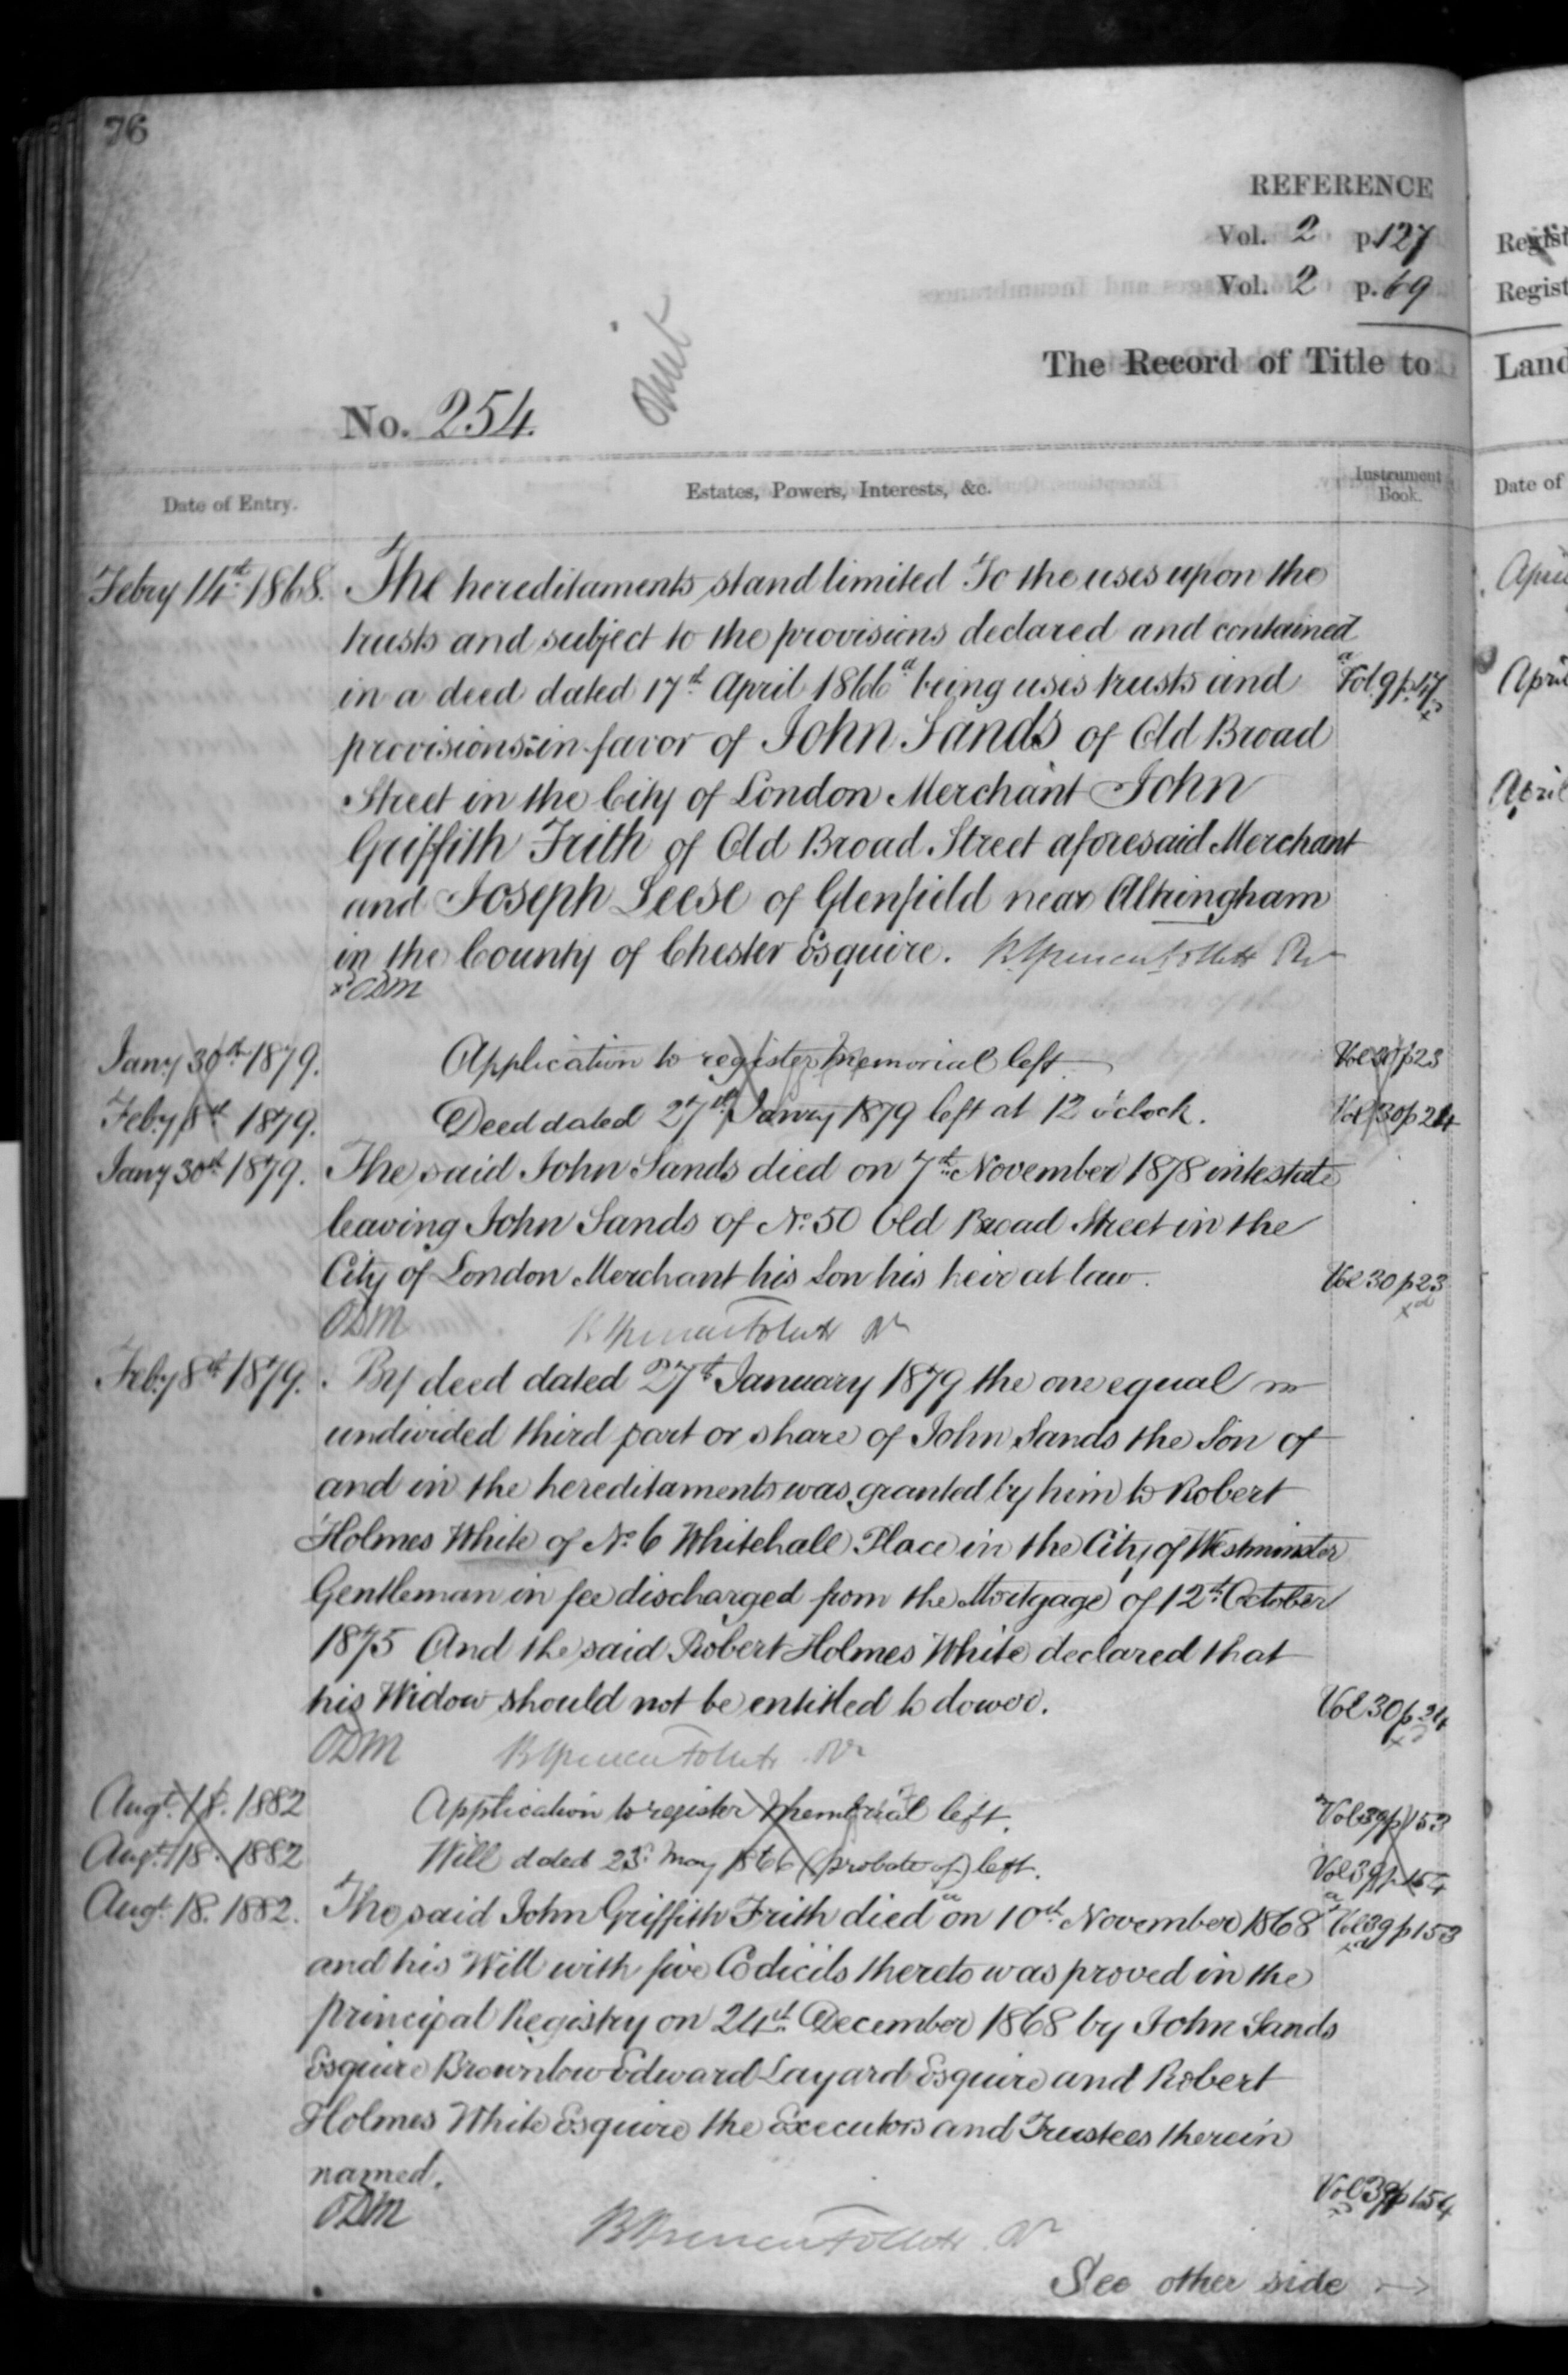 76
REFERENCE
Vol. 2 p. 127
Vol. 2 p. 69
The Record of Title to
omit
No. 254.
Date of Entry.
Estates, Powers, Interests, &c.
Instrument Book.
Febry 14th 1868. The hereditaments stand limited To the uses upon the
trusts and subject to the provisions declared and contained
in a deed dated 17th April 1866 a being uses trusts and a Vol. 9 p. 47
provisions in favor of John Sands of Old Broad
Street in the City of London Merchant John
Griffith Frith of Old Broad Street aforesaid Merchant
and Joseph Leese of Glenfield near Altringham
in the County of Chester Esquire. B. Spencer Follett Rr
x ODM
Jany 30th 1879. Application to register Memorial left Vol 30 p 23
Feby 8th 1879. Deed dated 27th Janry 1879 left at 12 o'clock. Vol 30 p 24
Jany 30th 1879. The said John Sands died on 7th November 1878 intestate
leaving John Sands of No. 50 Old Broad Street in the
City of London Merchant his Son his heir at law. Vol 30 p 23
ODM B Spencer Follett Rr
Feby 8th 1879. By deed dated 27th January 1879 the one equal
undivided third part or share of John Sands the Son of
and in the hereditaments was granted by him to Robert
Holmes White of No. 6 Whitehall Place in the City of Westminster
Gentleman in fee discharged from the Mortgage of 12th October
1875 And the said Robert Holmes White declared that
his Widow should not be entitled to dower. Vol 30 p 24
ODM B Spencer Follett Rr
Augt. 18. 1882 Application to register Memorial left. Vol 39 p 153
Augt. 18. 1882 Will dated 23d May 1866 (probate of) left. Vol 39 p. 154
Augt. 18. 1882. The said John Griffith Frith died a on 10th November 1868 a Vol 39 p 153
and his Will with five Codicils thereto was proved in the
principal Registry on 24th December 1868 by John Sands
Esquire Brownlow Edward Layard Esquire and Robert
Holmes White Esquire the Executors and Trustees therein
named. Vol 39 p 154
ODM B Spencer Follett Rr
See other side →
Regist
Regist
Land
Date of
April
April
April